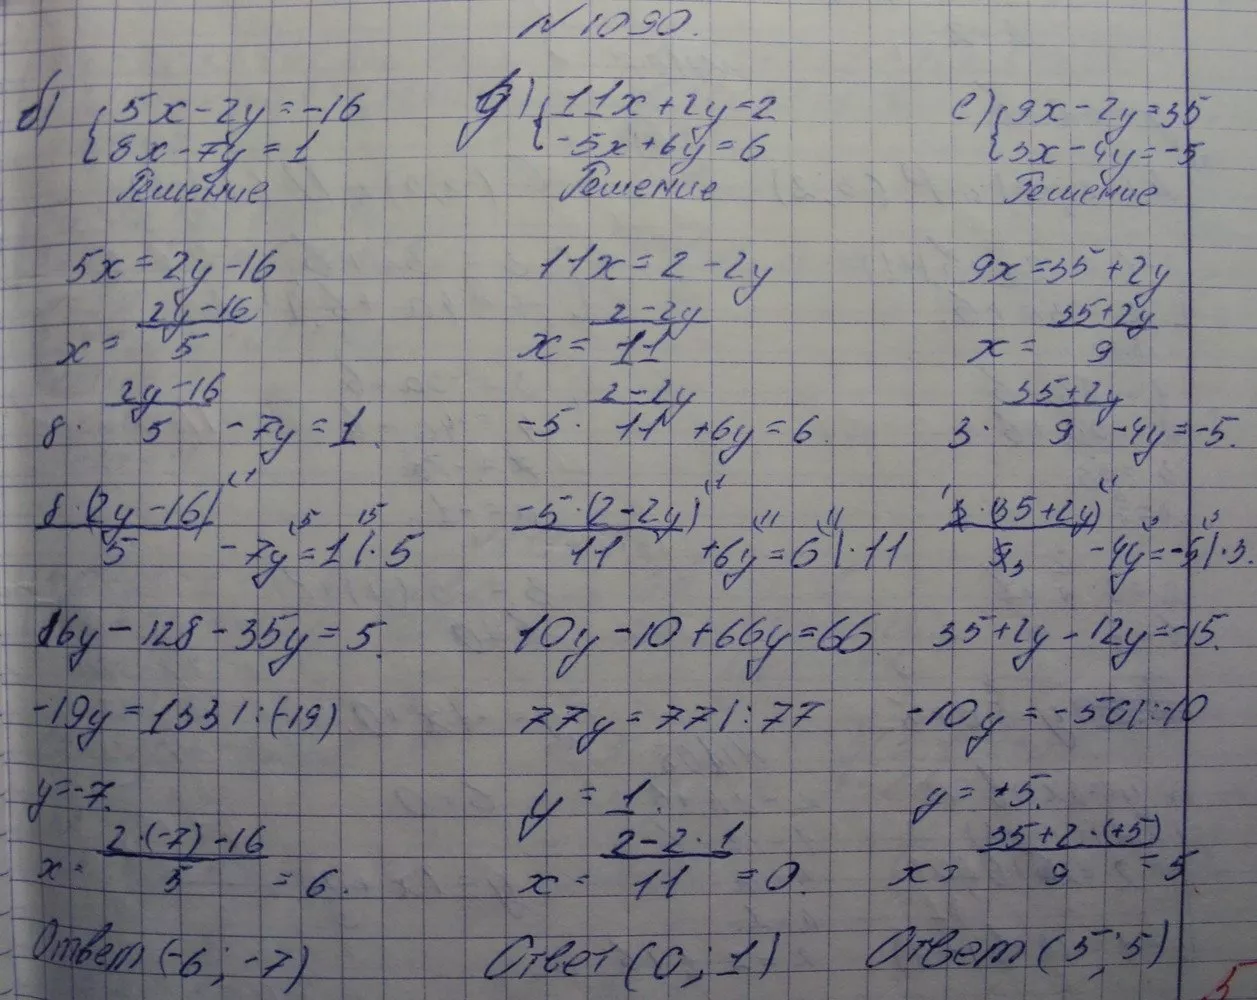 №1090.
б) {5x-2y=-16
{8x-7y=1
Решение
5x=2y-16
x= (2y-16)/5
8· (2y-16)/5 -7y=1.
8·(2y-16)/5 -7y=1 |·5
16y-128-35y=5.
-19y=133 |:(-19)
y=-7.
x= (2·(-7)-16)/5 =6.
Ответ (-6; -7)
д) {11x+2y=2
{-5x+6y=6
Решение
11x=2-2y
x= (2-2y)/11
-5· (2-2y)/11 +6y=6.
-5·(2-2y)/11 +6y=6 |·11
10y-10+66y=66
77y=77 |:77
y=1.
x= (2-2·1)/11 =0.
Ответ (0; 1)
е) {9x-2y=35
{3x-4y=-5
Решение
9x=35+2y
x= (35+2y)/9
3· (35+2y)/9 -4y=-5.
3·(35+2y)/9 3 -4y=-5 |·3.
35+2y-12y=-15.
-10y=-50 |:-10
y=+5.
x= (35+2·(+5))/9 =5
Ответ (5; 5)
5